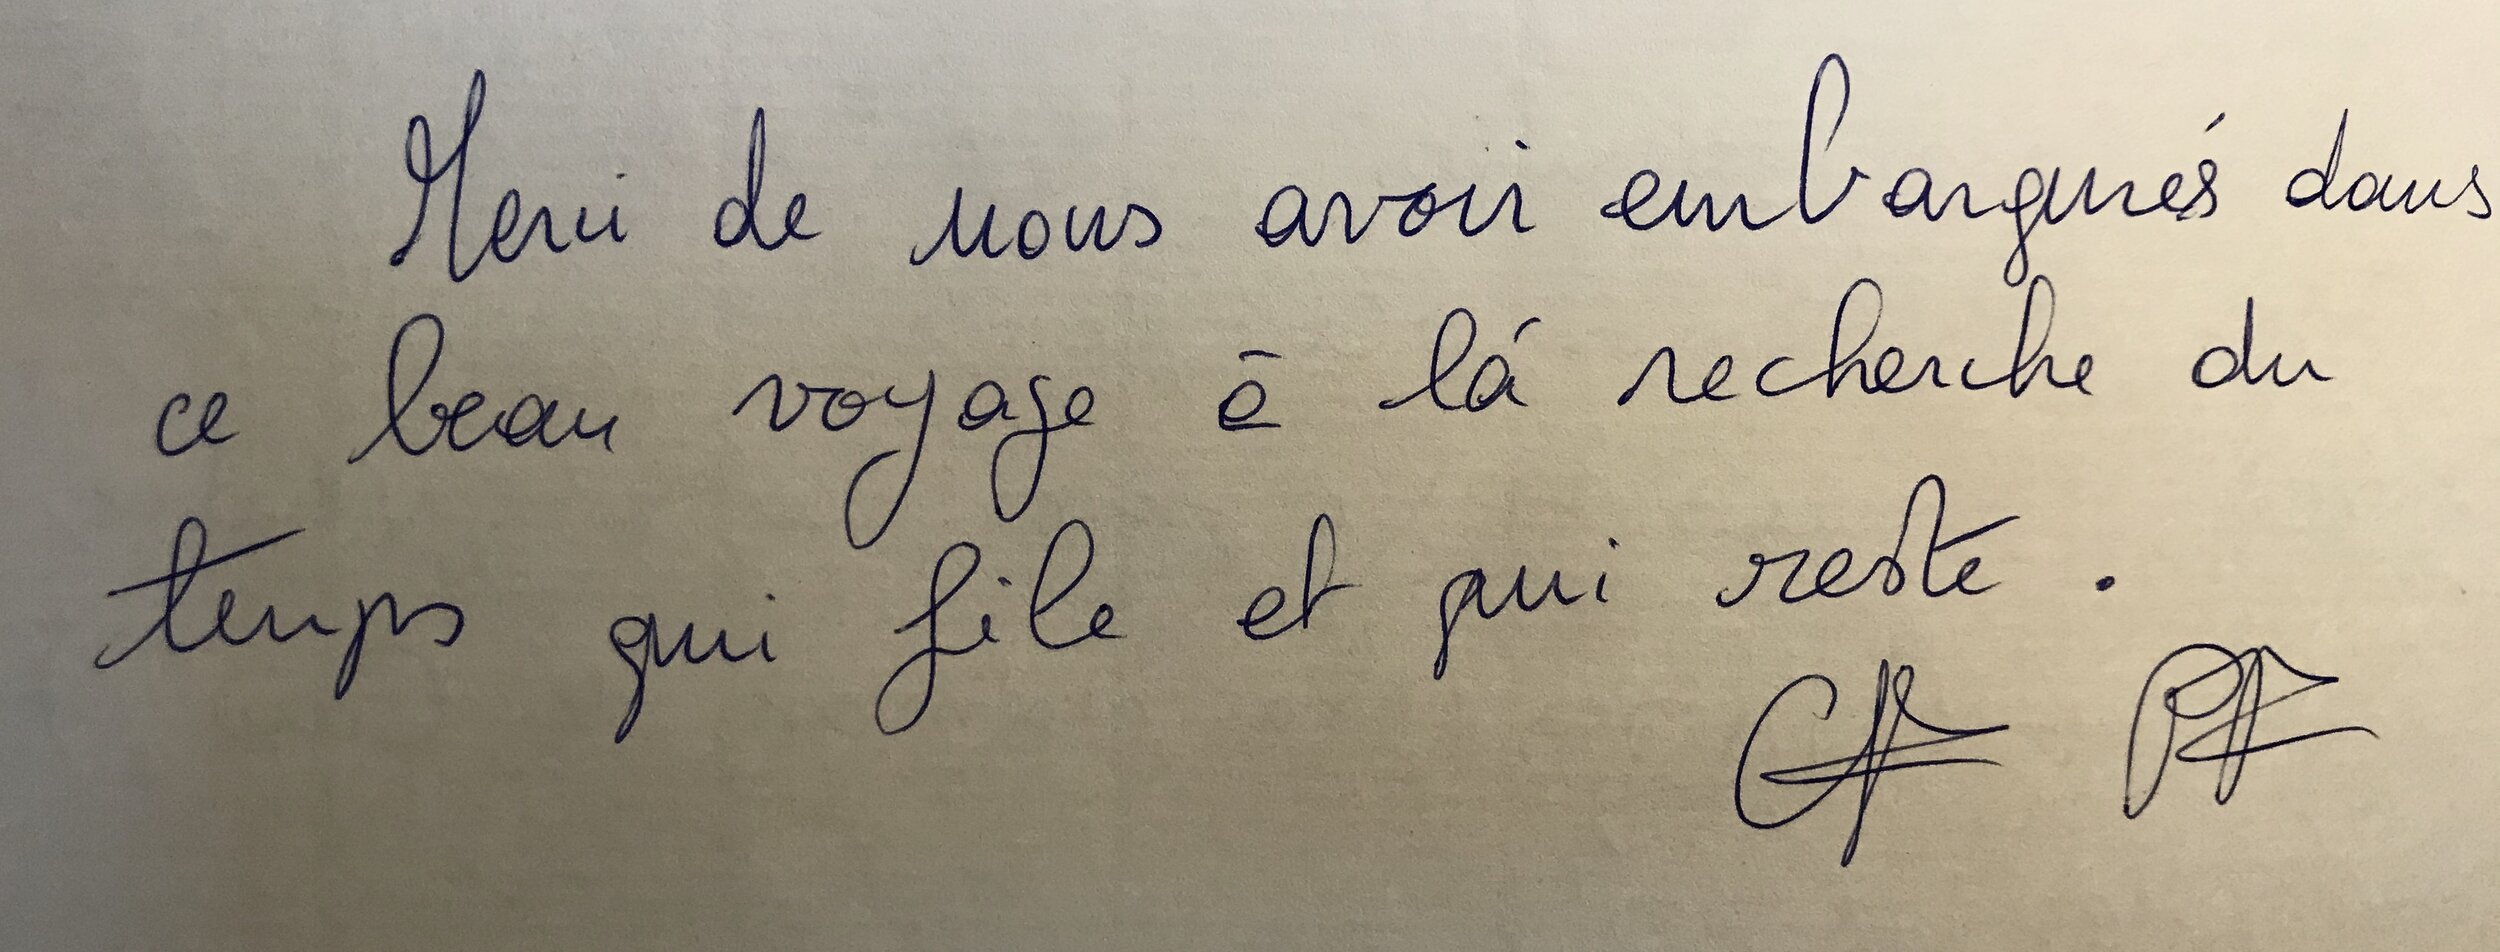 Merci de nous avoir embarqués dans
ce beau voyage à la recherche du
temps qui file et qui reste.